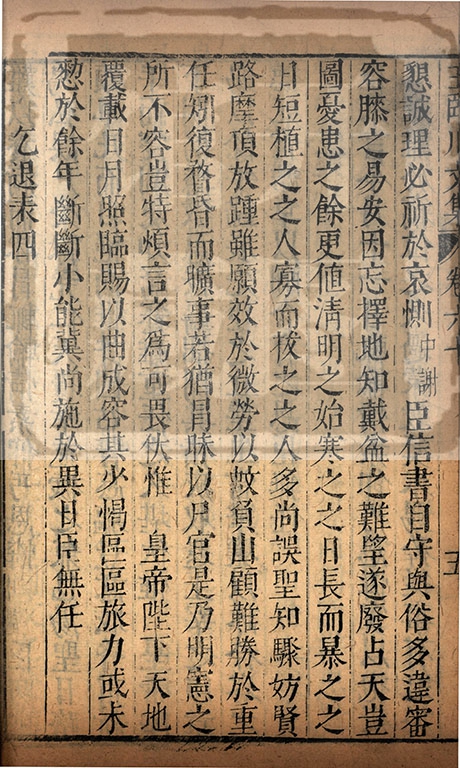 王臨川文集 卷六十 五
懇誠理必祈於哀惻中謝臣信書自守與俗多違審
容膝之易安因忘擇地知戴盆之難望遂廢占天豈
圖憂患之餘更値淸明之始寒之之日長而暴之之
日短植之之人寡而拔之之人多尚誤聖知驟妨賢
路摩頂放踵雖願效於微勞以蚊負山顧難勝於重
任矧復瞀昏而曠事若猶冒昧以尸官是乃明憲之
所不容豈特煩言之爲可畏伏惟 皇帝陛下天地
覆載日月照臨賜以曲成容其少惕區區旅力或未
愆於餘年斷斷小能冀尚施於異日臣無任
乞退表四